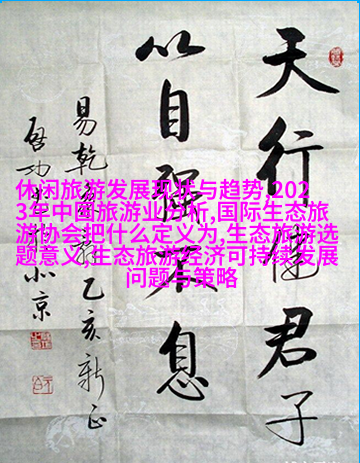 天行健君子
以自强不息
易乾 乙亥新正
启功 北京
休闲旅游发展现状与趋势,202
3年中国旅游业分析,国际生态旅
游协会把什么定义为,生态旅游选
题意义,生态旅游经济可持续发展
问题与策略